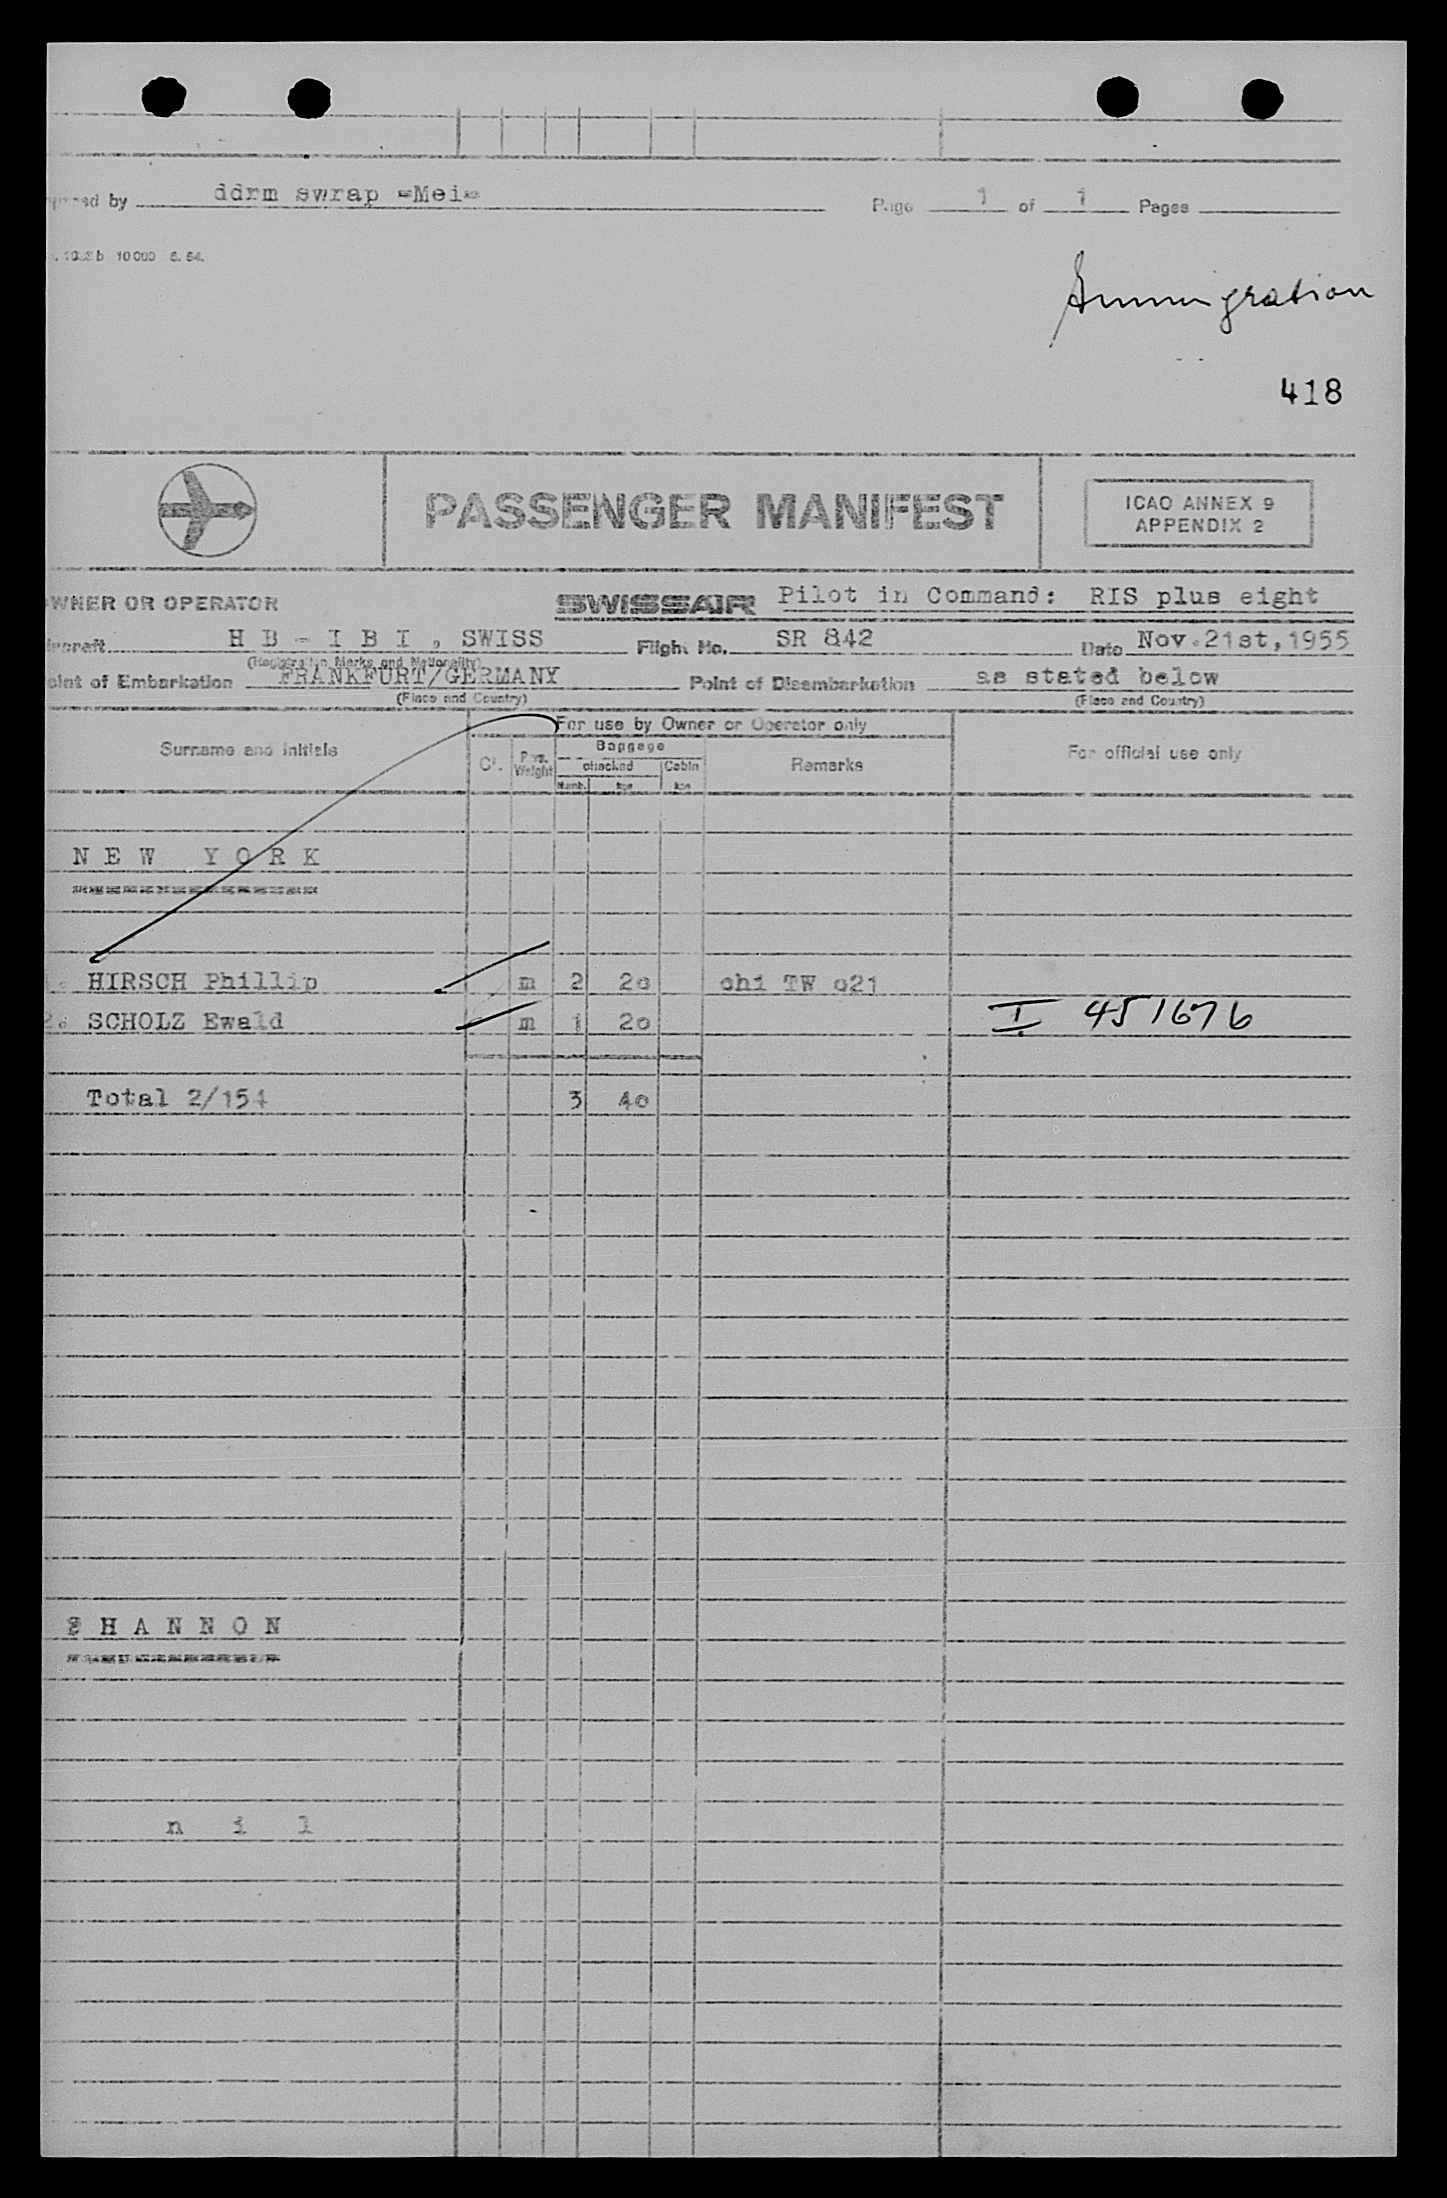 by ddrm swrap =Mei= Page 1 of 1 Pages
10 000 6. 54.
Immigration
418
PASSENGER MANIFEST
ICAO ANNEX 9
APPENDIX 2
OWNER OR OPERATOR SWISSAIR Pilot in Command: RIS plus eight
Aircraft H B - I B I , SWISS Flight No. SR 842 Date Nov.21st,1955
(Registration Marks and Nationality)
Point of Embarkation FRANKFURT/GERMANY Point of Disembarkation as stated below
(Place and Country) (Place and Country)
For use by Owner or Operator only
Surname and initials Cl. Pass. Weight Baggage Remarks For official use only
checked Cabin
Numb. kgs kgs
N E W Y O R K
1. HIRSCH Phillip m 2 20 chi TW 021
2. SCHOLZ Ewald m 1 20 I 451676
Total 2/154 3 40
S H A N N O N
n i l